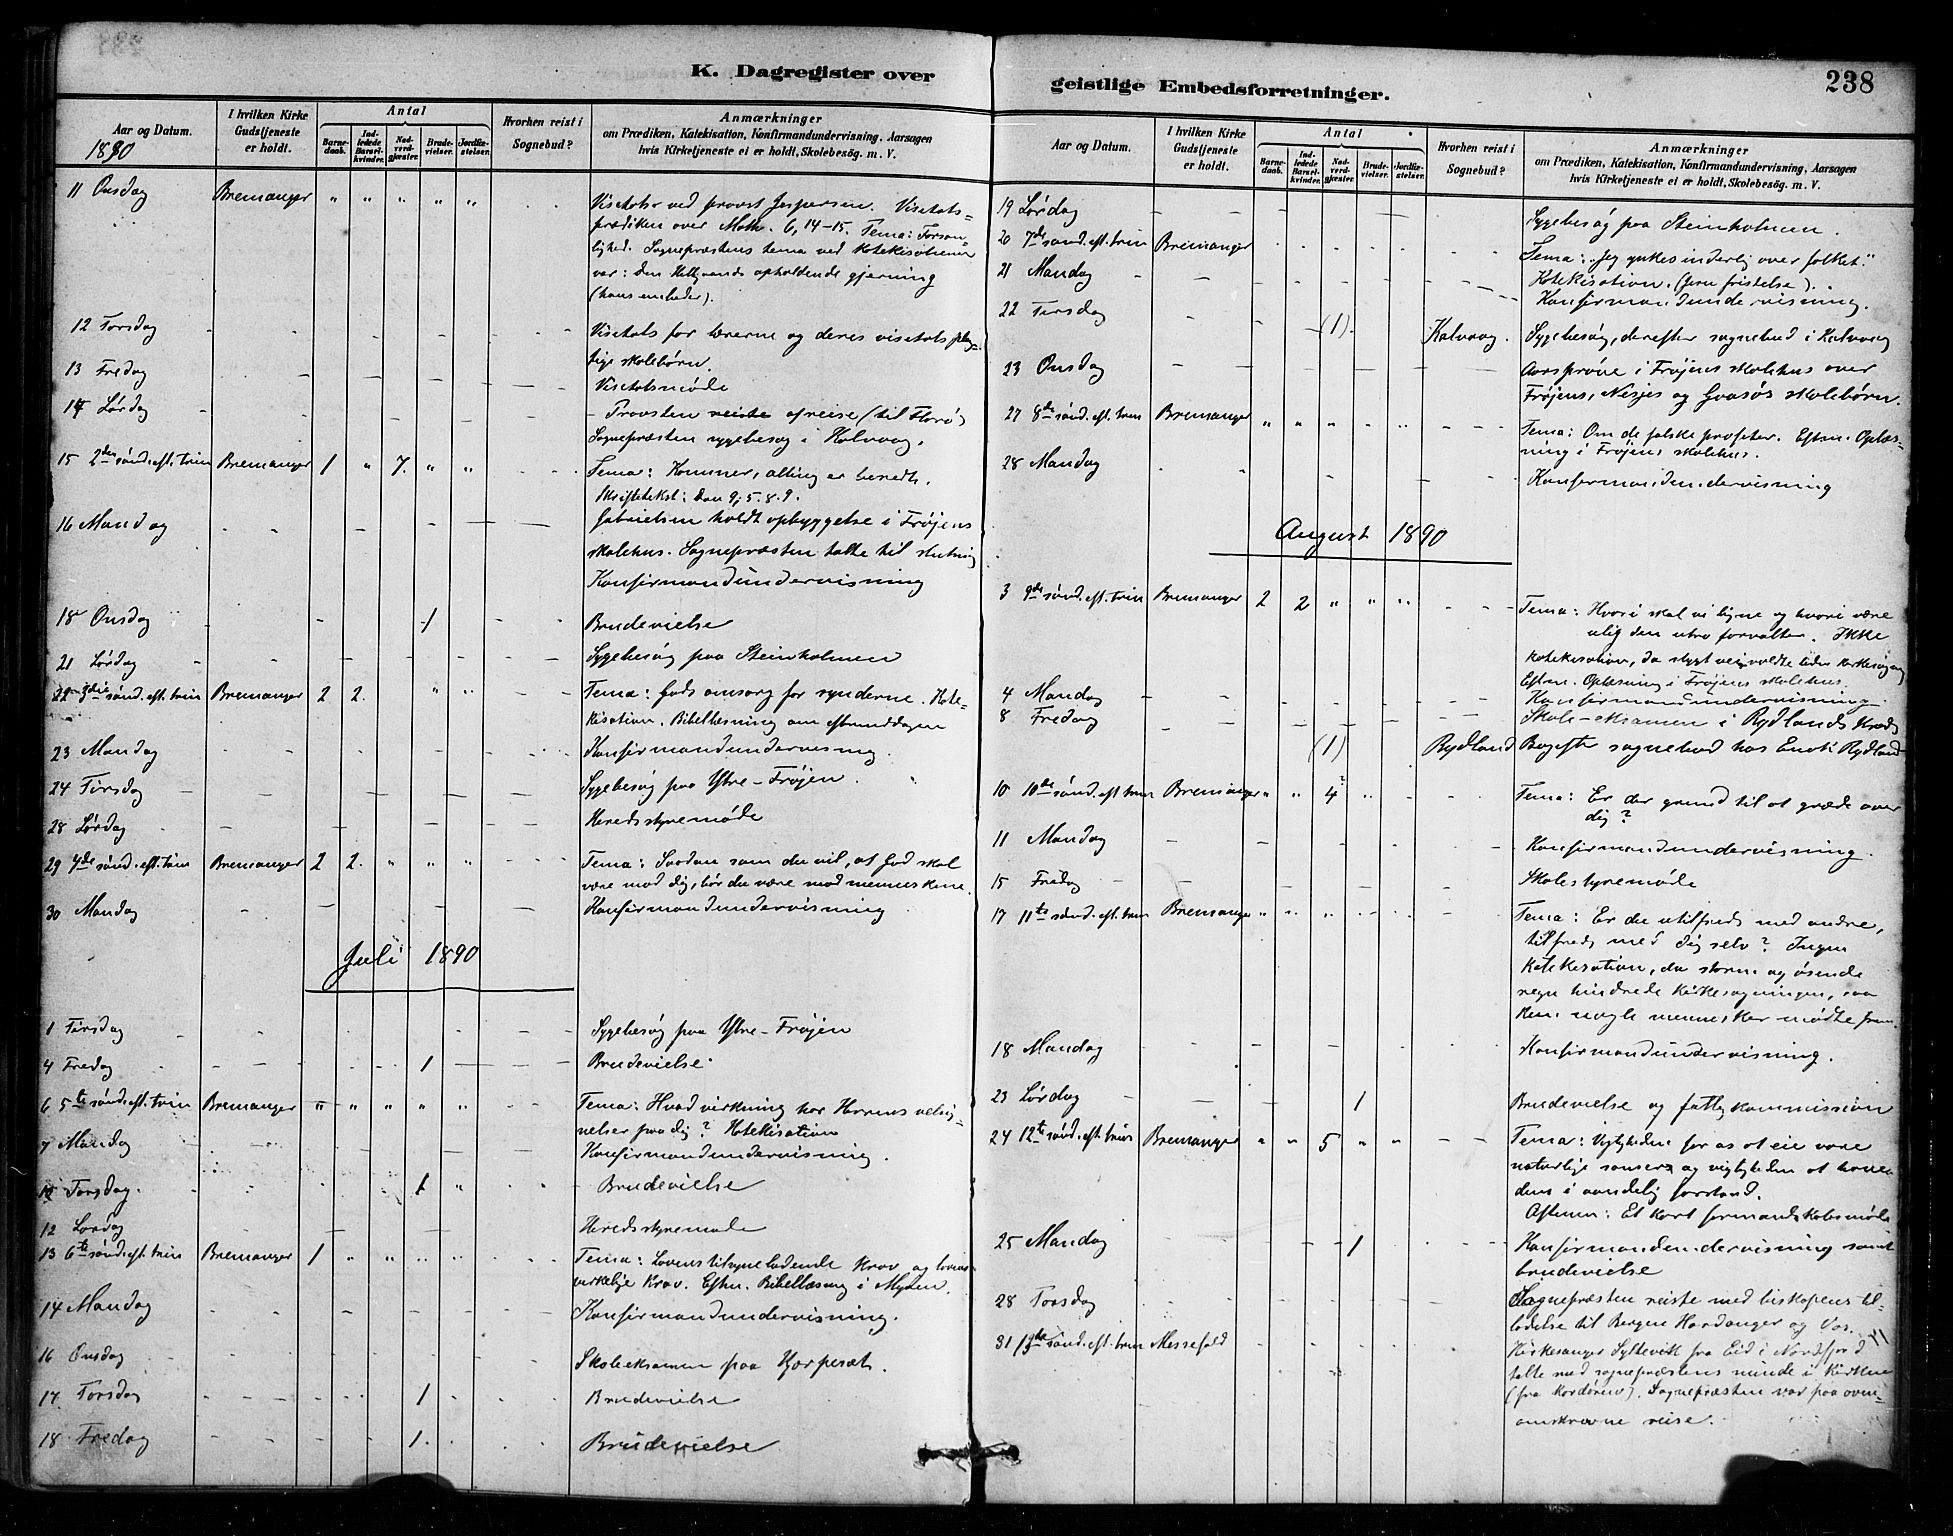 238
K. Dagregister over
geistlige Embedsforretninger.
Aar og Datum.
I hvilken Kirke Gudstjeneste er holdt.
Antal
Barnedaab.
Indledede Barselkvinder.
Nadverdgjæster.
Brudevielser.
Jordfæstelser.
Hvorhen reist i Sognebud?
Anmærkninger
om Prædiken, Katekisation, Konfirmandundervisning, Aarsagen
hvis Kirketjeneste ei er holdt, Skolebesøg. m. V.
1890
11 Onsdag Bremanger " " " " " Visitats ved provst Jespersen. Visitats=
prædiken over Math. 6, 14-15. Tema: Forson=
lighed. Sognepræstens tema ved Katekisationen
var: den Helligaands opholdende gjerning
(hans embeder).
12 Torsdag Visitats for lærerne og deres visitatsplig=
tige skolebørn.
13 Fredag Visitatsmøde
14 Lørdag - Provsten reiste afreise (til Florø)
Sognepræsten sygebesøg i Kalvaag.
15 2den sønd. eft. trin Bremanger 1 " 7. " " Tema: Kommer, alting er beredt.
Skriftetekst: Dan 9, 5. 8. 9.
16 Mandag Gabrielsen holdt opbyggelse i Frøjens
skolehus. Sognepræsten talte til slutning
Konfirmandundervisning
18 Onsdag 1 Brudevielse
21 Lørdag Sygebesøg paa Steinholmen
22 3die sønd. eft. trin Bremanger 2 2. " " Tema: Guds omsorg for synderne. Kate=
kisation. Bibellæsning om eftermiddagen
23 Mandag Konfirmandundervisning.
24 Tirsdag Sygebesøg paa Ytre-Frøjen.
28 Lørdag Heredsstyremøde
29 4de sønd. eft. trin Bremanger 2 2. " " " Tema: Saadan som du vil, at Gud skal
være mod dig, bør du være mod menneskene.
30 Mandag Konfirmandundervisning
Juli 1890
1 Tirsdag Sygebesøg paa Ytre-Frøjen
4 Fredag 1 Brudevielse.
6 5te sønd. eft. trin Bremanger " " " " " Tema: Hvad virkning har Herrens velsig=
nelser paa dig? Katekisation
7 Mandag Konfirmandundervisning.
10 Torsdag. 1 " Brudevielse
12 Lørdag Heredsstyremøde
13 6te sønd. eft. trin Bremanger 1 " " " " Tema: Lovens tilsyneladende krav og lovens
virkelige krav. Eftm. Bibellæsning i
14 Mandag Konfirmandundervisning.
16 Onsdag Skoleeksamen paa
17 Torsdag 1 Brudevielse
18 Fredag 1. Brudevielse
Aar og Datum.
I hvilken Kirke Gudstjeneste er holdt.
Antal
Barnedaab.
Indledede Barselkvinder.
Nadverdgjæster.
Brudevielser.
Jordfæstelser.
Hvorhen reist i Sognebud?
Anmærkninger
om Prædiken, Katekisation, Konfirmandundervisning, Aarsagen
hvis Kirketjeneste ei er holdt, Skolebesøg. m. V.
19 Lørdag Sygebesøg paa Steinholmen.
20 7de sønd. eft. trin Bremanger Tema: "Jeg ynkes inderlig over folket."
Katekisation. (Jesu fristelse).
21 Mandag Konfirmandundervisning.
22 Tirsdag (1). Kalvaag. Sygebesøg, derefter sognebud i Kalvaag
23 Onsdag Aarsprøve i Frøjens skolehus over
Frøjens, Nesjes og Gaasøs skolebørn.
27 8de sønd. eft. trin Bremanger " " " " " Tema: Om de falske profeter. Eftm. Oplæs=
ning i Frøjens skolehus.
28 Mandag Konfirmandundervisning
August 1890
3 9de sønd. eft. trin Bremanger 2 2 " " " Tema: Hvori skal vi ligne og hvori være
ulig den utro forvalter. Ikke
katekisation, da stygt veir voldte liden kirkesøgning
Eftm. Oplæsning i Frøjens skolehus.
4 Mandag Konfirmandundervisning.
8 Fredag Skole-eksamen i Rydlands kreds
(1) Rydland Bagefter sognebud hos Enok Rydland
10 10de sønd. eft. trin Bremanger " " 4 " Tema: Er der grund til at græde over
dig?
11 Mandag Konfirmandundervisning.
15 Fredag Skolestyremøde
17 11te sønd. eft. trin Bremanger " " " " " Tema: Er du utilfreds med andre,
tilfreds med dig selv? Ingen
katekisation, da storm og øsende
regn hindrede kirkesøgningen, saa
kun nogle mennesker mødte frem.
18 Mandag Konfirmandundervisning.
23 Lørdag 1 Brudevielse og fattigkommission
24 12te sønd. eft. trin Bremanger " " 5 " " Tema: Vigtigheden for os at eie vore
naturlige sanser og vigtigheden at have
dem i aandelig forstand.
Aftenen: Et kort formandskabsmøde
25 Mandag 1 Konfirmandundervisning samt
brudevielse
28 Torsdag Sognepræsten reiste med biskopens til=
ladelse til Bergen Hardanger og Vos.
31 13de sønd. eft. trin Messefald Kirkesanger Syltevik fra Eid i Nordfjord
talte med sognepræstens minde i kirken
(fra kordøren). Sognepræsten var paa oven=
omskrevne reise.